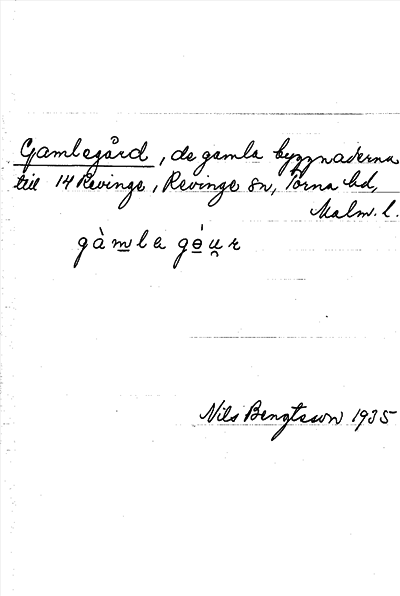 Gamlegård, de gamla byggnaderna
till 14 Revinge, Revinge sn, Torna hd,
Malm. l.
gàm̲la gó̲u̯r
Nils Bengtsson 1935